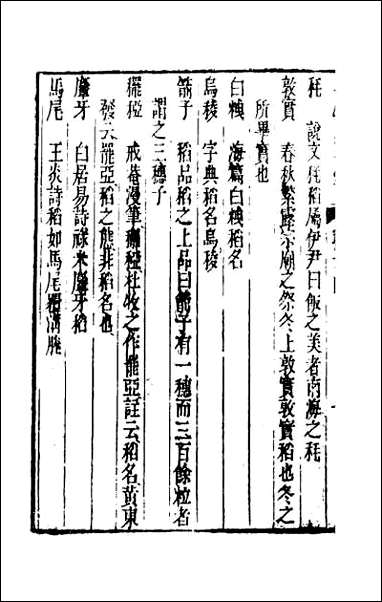 秏　說文秏稻屬伊尹曰飯之美者南海之秏
敦實　春秋繁露宗廟之祭冬上敦實敦實稻也冬之
所畢實也
白稬　海篇白稬稻名
烏稜　字典稻名烏稜
箭子　稻品稻之上品曰箭子有一穗而三百餘粒者
謂之三穗子
䆉稏　戒菴漫筆䆉稏杜牧之作罷亞註云稻名黃東
發云罷亞稻之態非稻名也
麞牙　白居易詩祿米麞牙稻
馬尾　王炎詩稻如馬尾覆溝塍